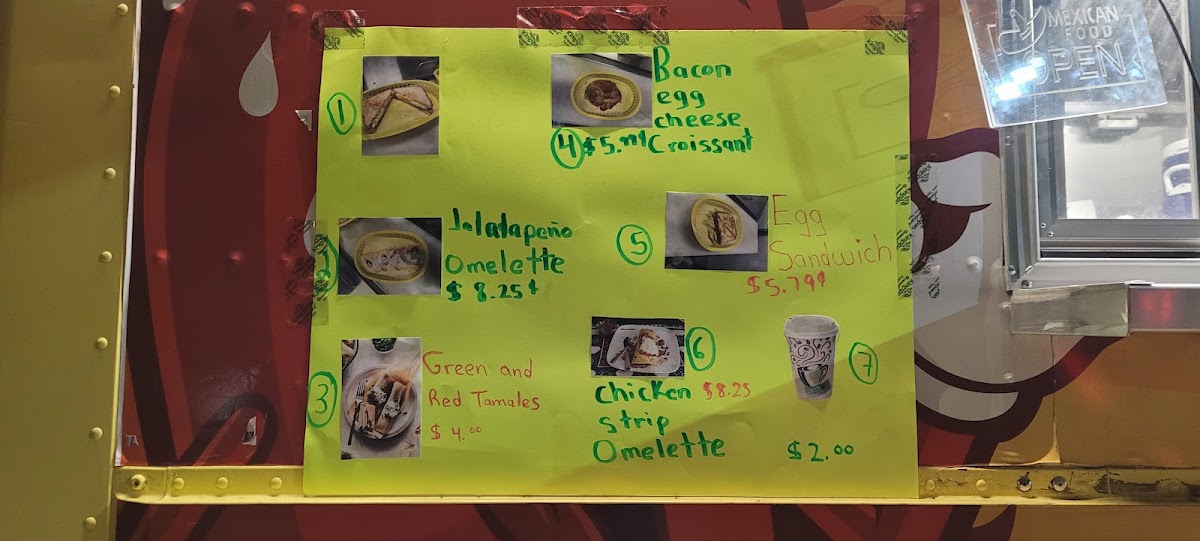 1
Bacon
egg
cheese
4 $5.79¢ Croissant
2
Jalalapeño
Omelette
$ 8.25¢
5
Egg
Sandwich
$5.79¢
3
Green and
Red Tamales
$ 4.00
6
Chicken $8.25
Strip
Omelette
7
$2.00
MEXICAN
FOOD
OPEN